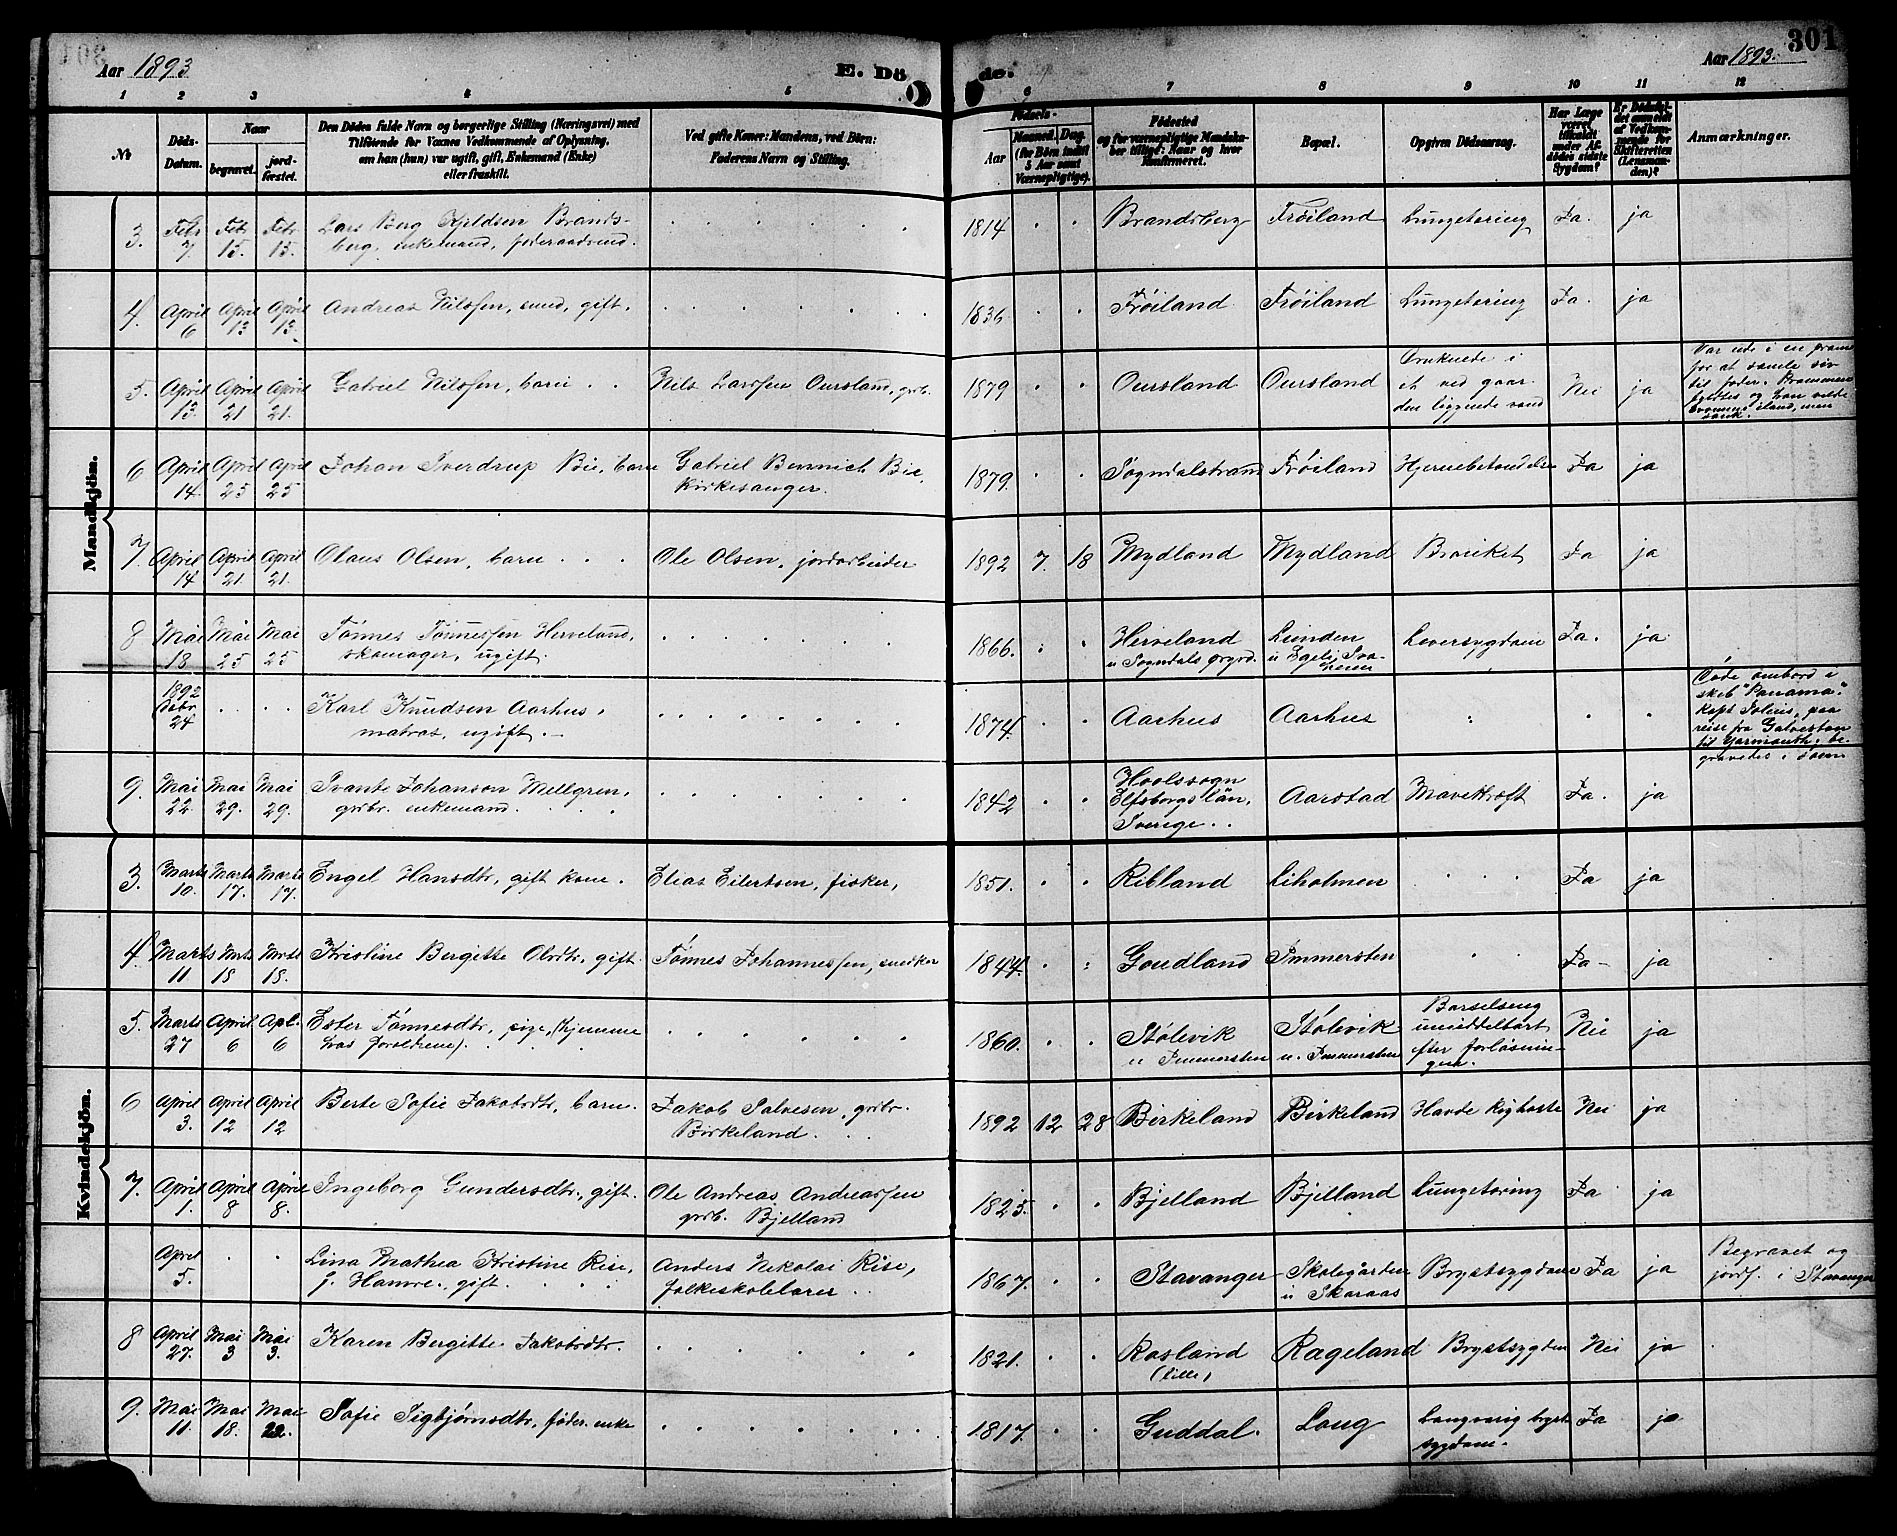 Aar 1893
E. Döde.
Aar 1893.
301
1 2 3 4 5 6 7 8 9 10 11 12
No
Döds-Datum.
Naar
begravet.
jordfæstet.
Den Dödes fulde Navn og borgerlige Stilling (Næringsvei) med
Tilföiende for Voxnes Vedkommende af Oplysning,
om han (hun) var ugift, gift, Enkemand (Enke)
eller fraskilt.
Ved gifte Koner: Mandens, ved Börn:
Faderens Navn og Stilling.
Födsels-
Aar
Maaned. Dag.
(for Börn indtil
5 Aar samt
Værnepligtige).
Födested
og for værnepligtige Mandskaber tillige: Naar og hvor
konfirmeret.
Bopæl.
Opgiven Dödsaarsag.
Har Læge
været
tilkaldt
under Afdödes sidste
Sygdom?
Er Dödsfaldet anmeldt
af Vedkommende for
Skifteretten
(Lensmanden)?
Anmærkninger.
Mandkjön.
3. Febr 7. Febr 15. Febr 15. Lars Berg Kjeldsen Brandsberg, enkemand, föderaadsmd. 1814 Brandsberg Frøiland Lungetæring Ja. ja
4. April 6 April 13 April 13. Andreas Nilssen, smed, gift. 1836 Frøiland Frøiland Lungetæring Ja. ja
5. April 13. April 21 April 21. Gabriel Nilssen, barn Nils Larssen Oursland, grb. 1879 Oursland Oursland Druknede i
et ved gaarden liggende vand Nei ja Var ude i en pram
for at samle siv
til foder. Prammen
fyldtes og han vilde
svømme iland, men
sank.
6 April 14. April 25 April 25 Johan Sverdrup Bie, barn Gabriel Bennich Bie,
kirkesanger. 1879. Sogndalstrand Frøiland Hjernebetændelse Ja ja
7 April 14 April 21. April 21. Olaus Olsen, barn Ole Olsen, jordarbeider 1892 7. 18 Mydland Mydland Bronket Ja ja
8 Mai 18. Mai 25 Mai 25 Tönnes Tönnessen Herveland,
skomager, ugift. 1866. Herveland
u Sogndals prgrd. Lunden
u Egelj Leversygdom Ja. ja
1892 Decbr 24 Karl Knudsen Aarhus,
matros, ugift. 1874. Aarhus Aarhus Døde ombord i
skib "Panama",
kapt Solius, paa
reise fra Galveston
til Yarmouth; begravedes i søen
9. Mai 22. Mai 29. Mai 29. Svante Johanson Mellgren,
grbr. enkemand. 1842 Hoolssogn
Elfsborgs län,
Sverige. Aarstad Mavekræft Ja. ja
Kvindekjön.
3. Marts 10. Marts 17. Marts 17. Engel Hansdtr, gift kone. Elias Eilertsen, fisker, 1851. Ribland Liholmen Ja ja
4 Marts 11 Mrts 18 Mrts 18. Kristine Bergitte Olsdtr, gift. Tönnes Johannessen, snedker 1844. Goudland Immersten Ja ja
5. Marts 27 April 6 Apl. 6 Ester Tönnesdtr, pige, (hjemme
hos forældrene). 1860. Stölevik
u Immersten Stölevik
u. Immersten Barselseng
umiddelbart
efter forløsningen. Nei ja
6 April 3. April 12 April 12 Berte Sofie Jakobsdtr, barn. Jakob Salvesen, grbr.
Birkeland. 1892 12 28 Birkeland Birkeland Havde kighoste Nei ja
7. April 1. April 8 April 8. Ingeborg Gundersdtr., gift. Ole Andreas Andreassen
grb. Bjelland 1825. Bjelland Bjelland Lungetæring Ja ja
April 5. Lina Mathea Kristine Rise,
f. Hamre, gift. Anders Nikolai Rise,
folkeskolelærer 1867. Stavanger Skolegården
u Skaraas Brystsygdom Ja ja Begravet og
jordf. i Stavanger
8 April 27. Mai 3 Mai 3. Karen Bergitte Jakobsdtr. 1821. Rosland
(lille) Rageland Brystsygdom Nei ja
9. Mai 11. Mai 18. Mai 22. Sofie Sigbjørnsdtr, føder. enke 1817. Guddal. Loug Langvarig bryst
sygdom. Ja ja